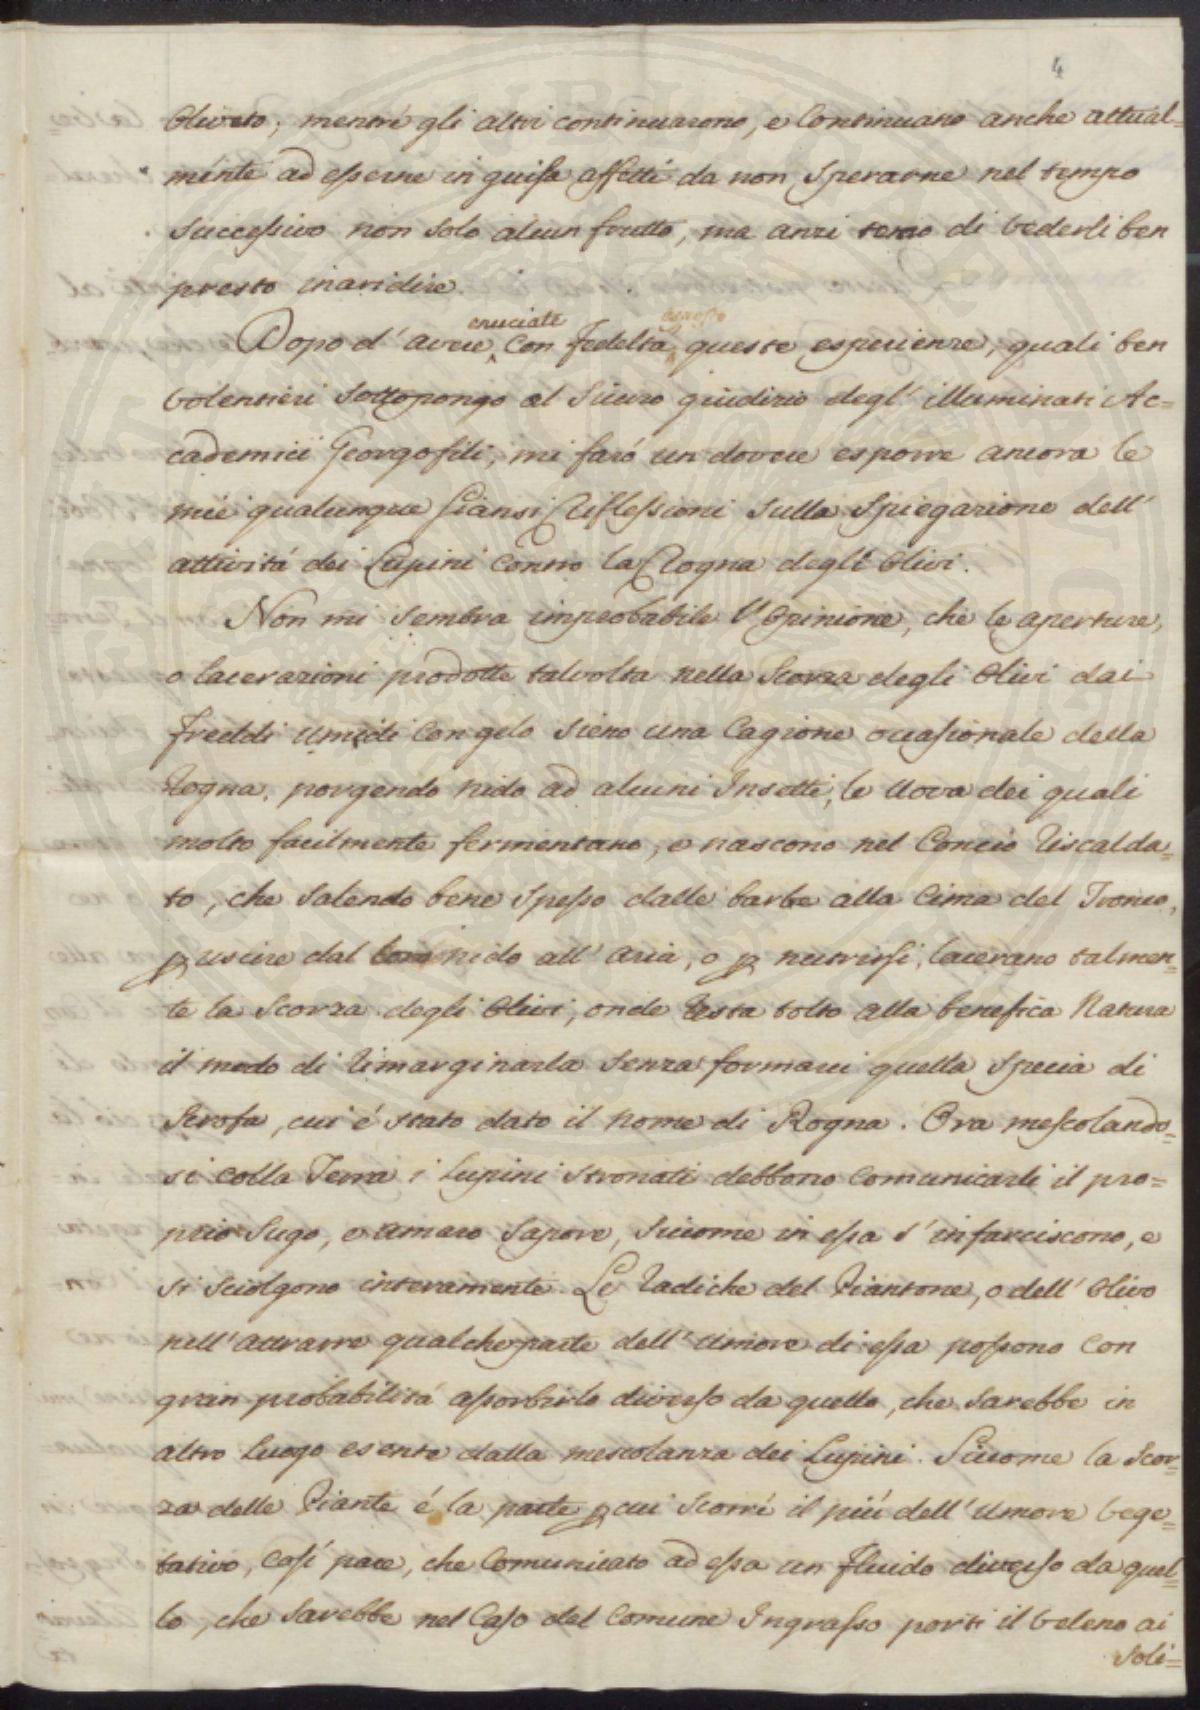 4
Oliveto; mentre gli altri continuarono, e Continuano anche attual=
mente ad esserne in guisa affetti da non Sperarne nel tempo
Successivo non Solo alcun frutto, ma anzi temo di vederli ben
presto inaridire.
cruciate
Dopo d' avere, Con Fedeltà queste esperienze, quali ben
volentieri Sottopongo al Sicuro giudizio degl' illuminati Ac=
cademici Georgofili, mi farò un dovere esporre ancora le
mie qualunque Siansi Riflessioni Sulla Spiegazione dell'
attività dei Lupini Contro la Rogna degli Olivi.
Non mi Sembra improbabile l' Opinione, che le aperture,
o lacerazioni prodotte talvolta nella Scorza degli Olivi dai
freddi umidi Con gelo Sieno una Cagione occasionale della
Rogna, porgendo Nido ad alcuni Insetti, le Uova dei quali
molto facilmente fermentano, e nascono nel Concio Riscalda=
to, che Salendo bene Spesso dalle barbe alla Cima del Tronco,
p uscire dal loro nido all' aria, o p nutrirsi, lacerano talmen=
te la Scorza degli Olivi, onde Resta tolto alla benefica Natura
il modo di Rimarginarla Senza formarvi quella Specia di
Scrofa, cui é Stato dato il Nome di Rogna. Ora mescolando=
si colla Terra i Lupini Stronati debbono Comunicarli il pro=
prio Sugo, e amaro Sapore, Siccome in essa s' infarciscono, e
Si Sciolgono interamente. Le Radiche del Piantone, o dell' Olivo
nell' attrarre qualche parte dell' Umore di essa possono Con
gran probabilità assorbirlo diverso da quello, che Sarebbe in
altro Luogo esente dalla mescolanza dei Lupini. Siccome la Scor=
za delle Piante é la parte p cui Scorre il più dell' Umore Vege=
tativo, Così pare, che Comunicato ad essa un Fluido diverso da quel=
lo, che Sarebbe nel Caso del Comune Ingrasso porti il Veleno ai
Soli=